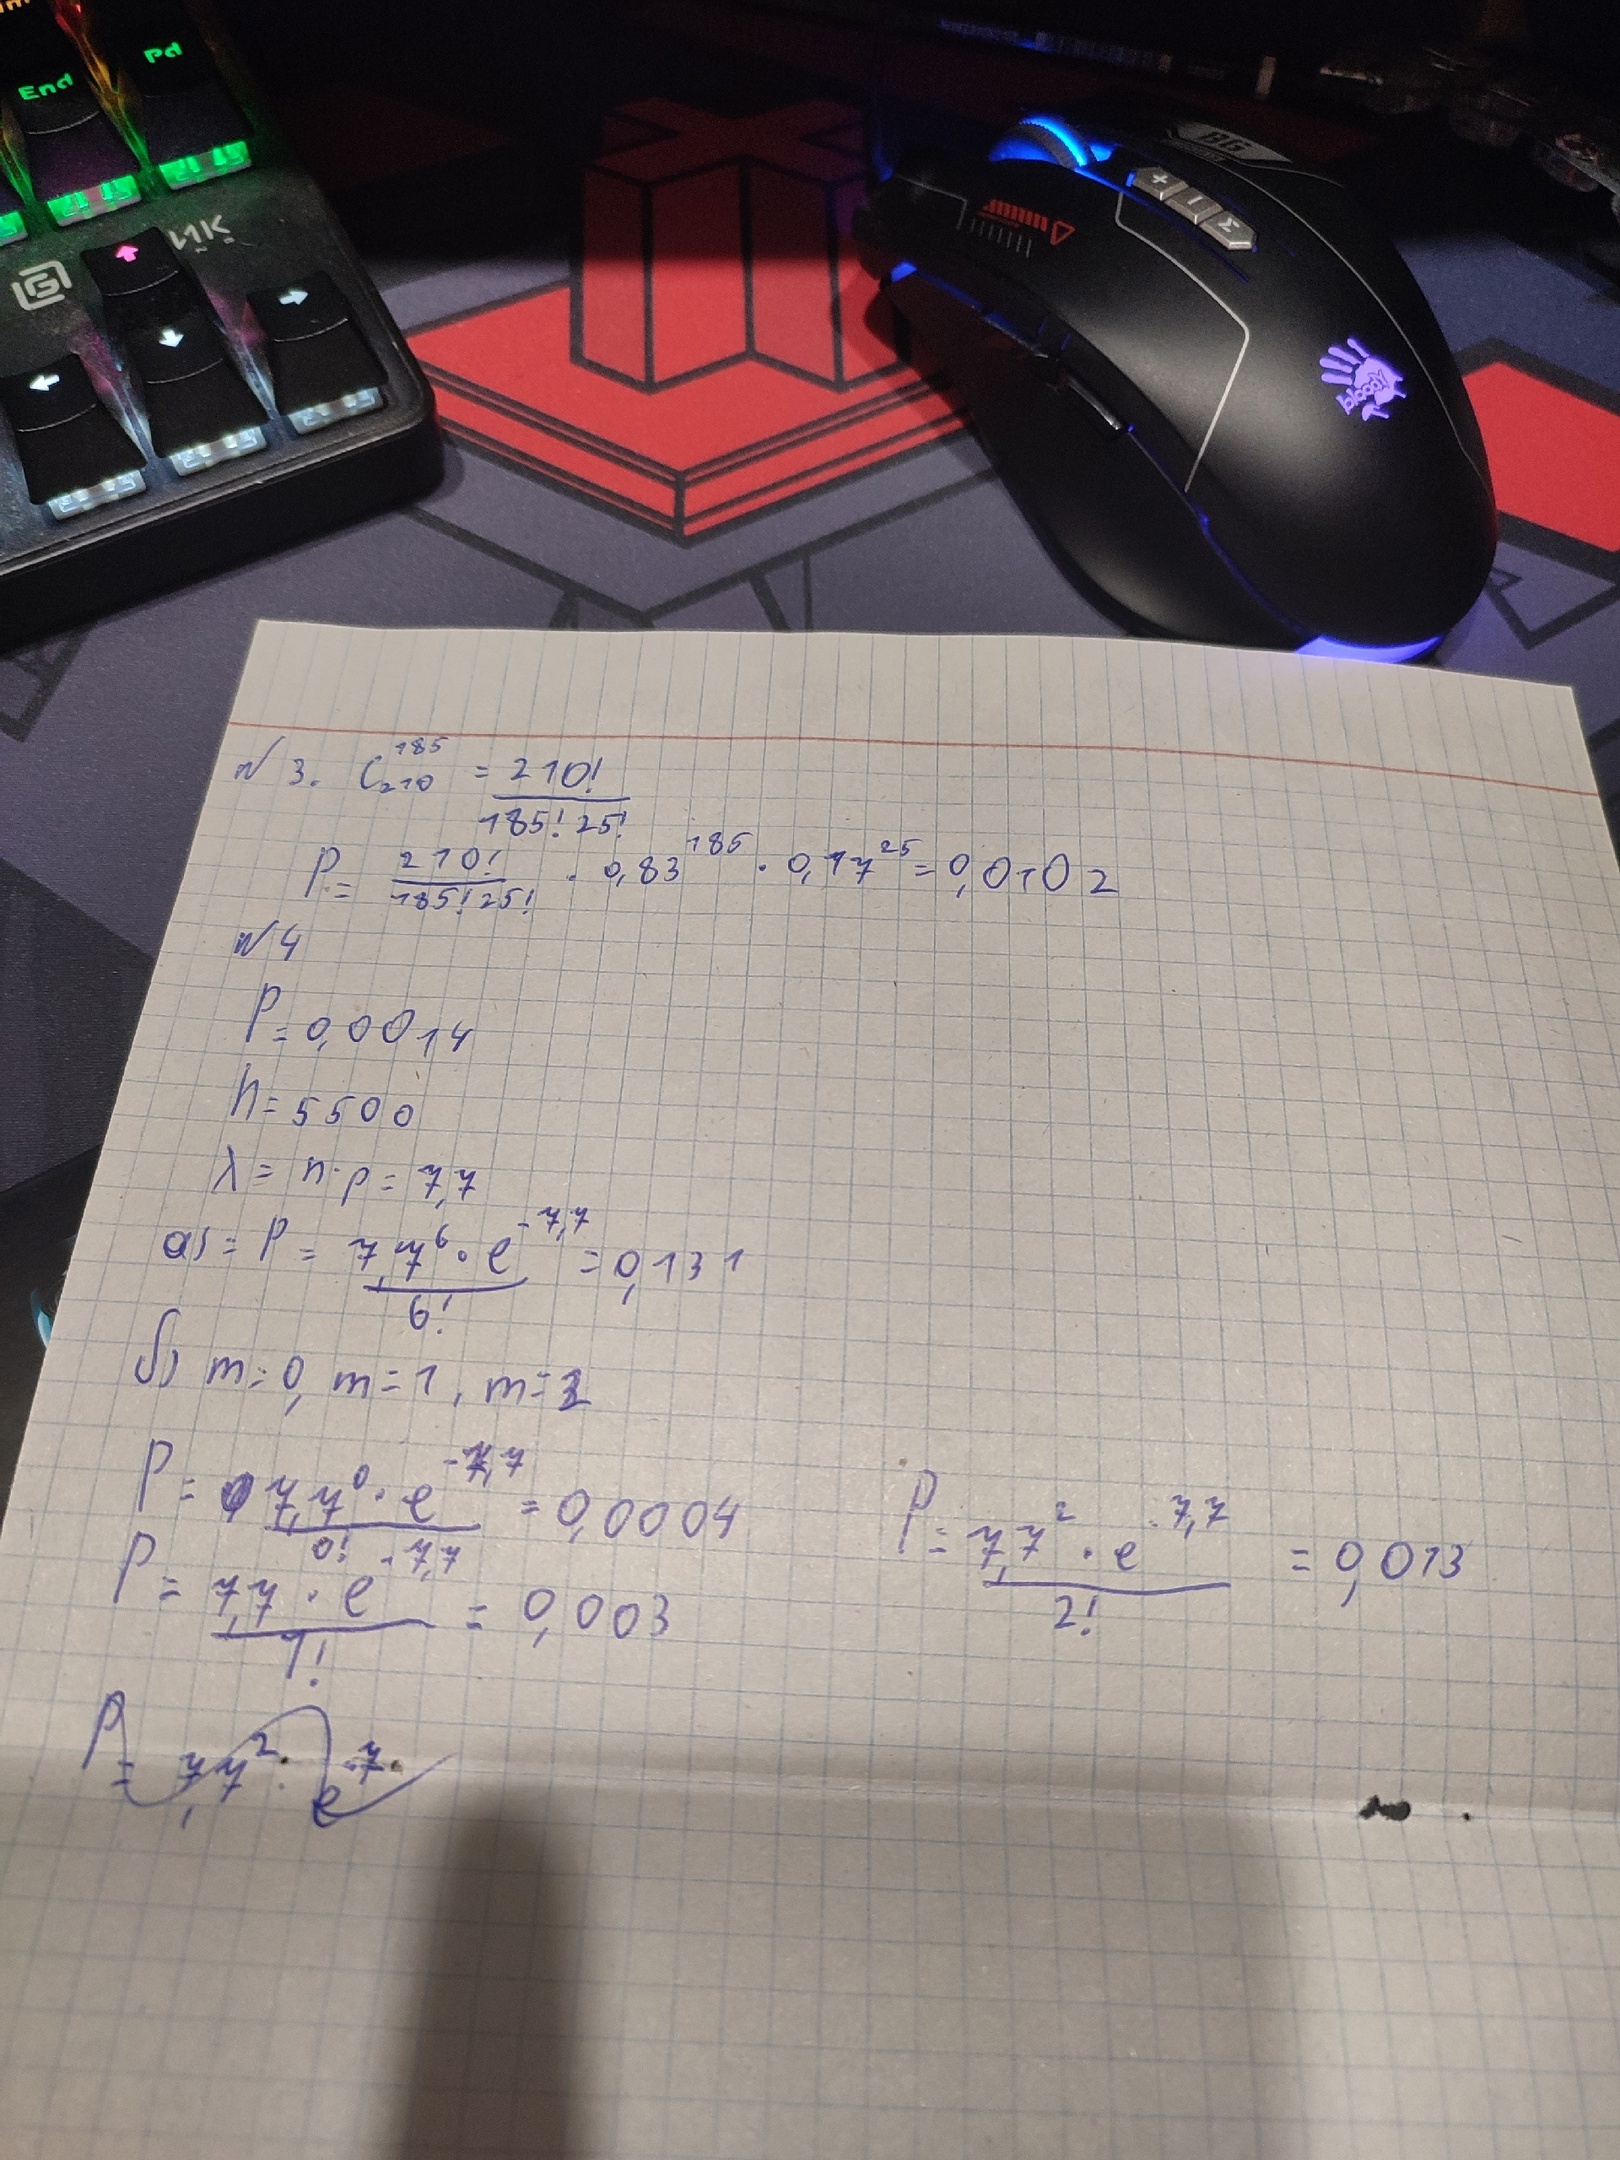 End
Pd
BG
bloody
N 3. C₂₁₀¹⁸⁵ = 210! / 185! 25!
P = 210! / 185! 25! · 0,83¹⁸⁵ · 0,17²⁵ = 0,0102
N 4
P = 0,0014
n = 5500
λ = n · p = 7,7
а) = P = 7,7⁶ · e^-7,7 / 6! = 0,131
б) m=0, m=1, m=2
P = 7,7⁰ · e^-7,7 / 0! = 0,0004
P = 7,7² · e^-7,7 / 2! = 0,013
P = 7,7 · e^-7,7 / 1! = 0,003
P = 7,7² · e^-7